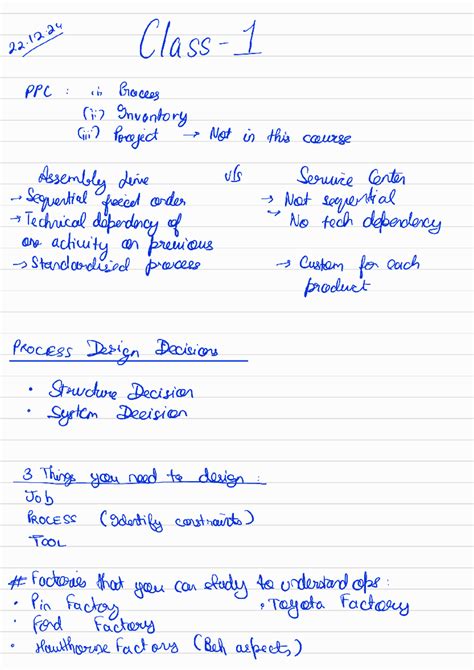 22.12.24
Class-1
PPC : (i) Process
(ii) Inventory
(iii) Project → Not in this course
Assembly Line v/s Service Center
→ Sequential fixed order → Not sequential
→ Technical dependency of → No tech dependency
one activity on previous
→ Standardised process → Custom for each
product
PROCESS Design Decisions
• Structure Decision
• System Decision
3 Things you need to design :
Job
PROCESS (Identify constraints)
TOOL
# Factories that you can study to understand ops:
• Pin Factory • Toyota Factory
• Ford Factory
• Hawthorne Factory (Beh aspects)